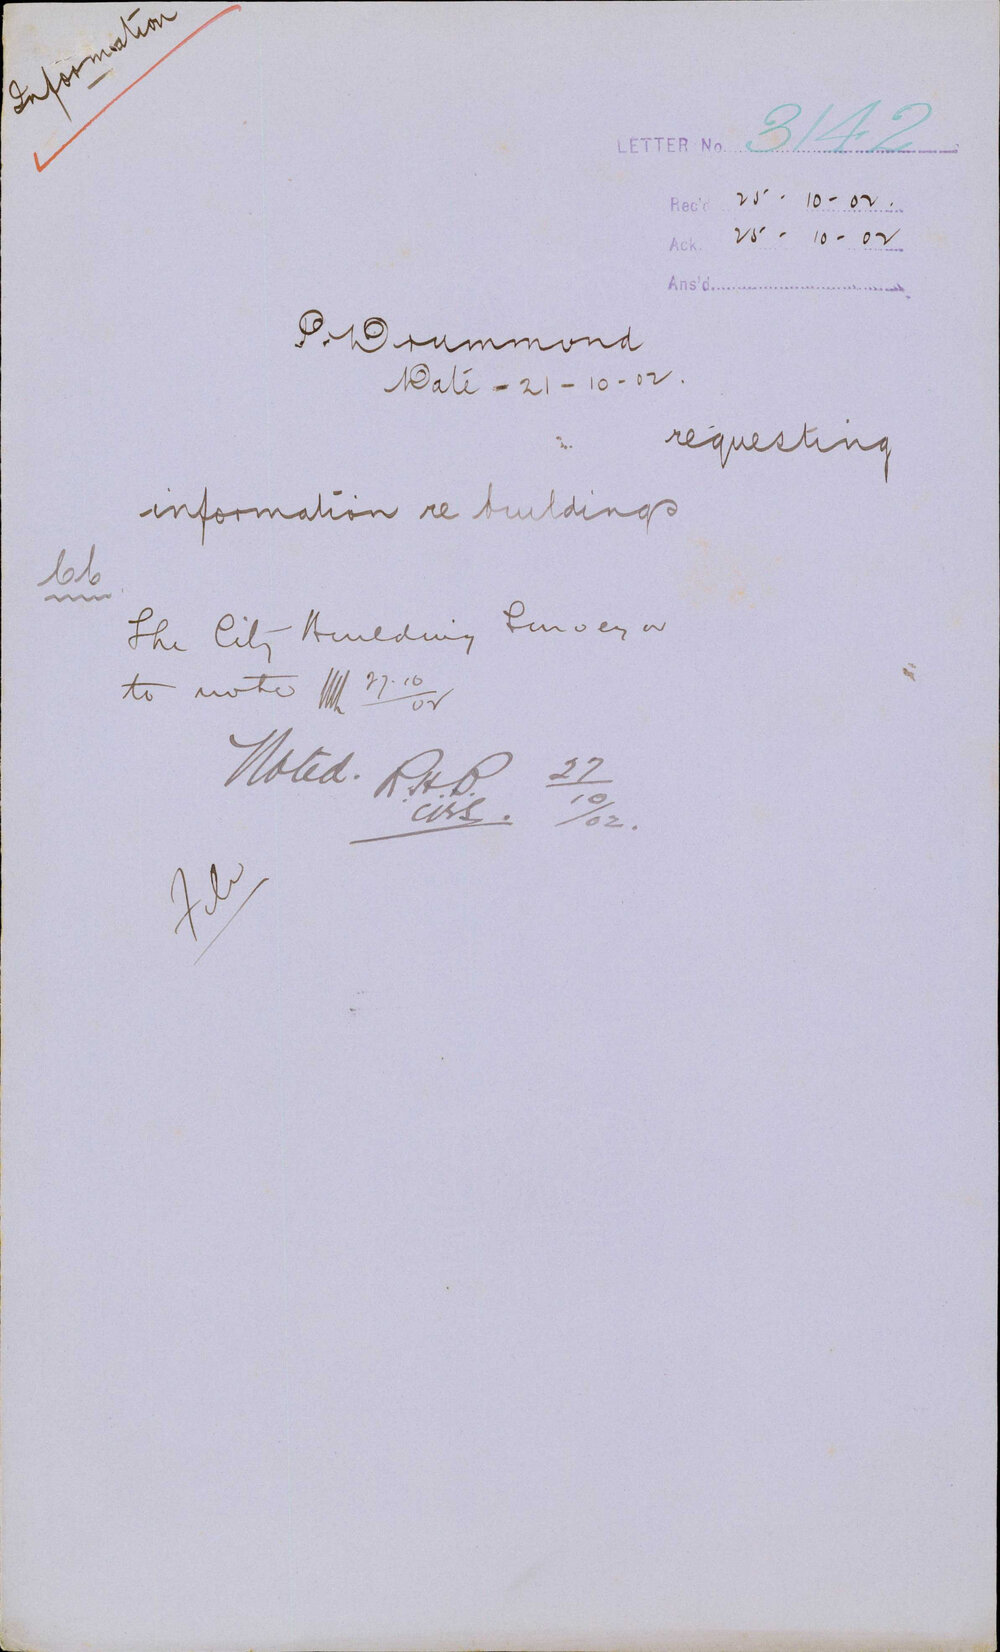 Information
LETTER No. 3142
Rec'd 25 - 10 - 02.
Ack. 25 - 10 - 02
Ans'd
P. Drummond
Date - 21 - 10 - 02.
requesting
information re buildings
The City Building Surveyor
to note 27.10/02
Noted. R.H.B. 27/10/02.
CBS.
File